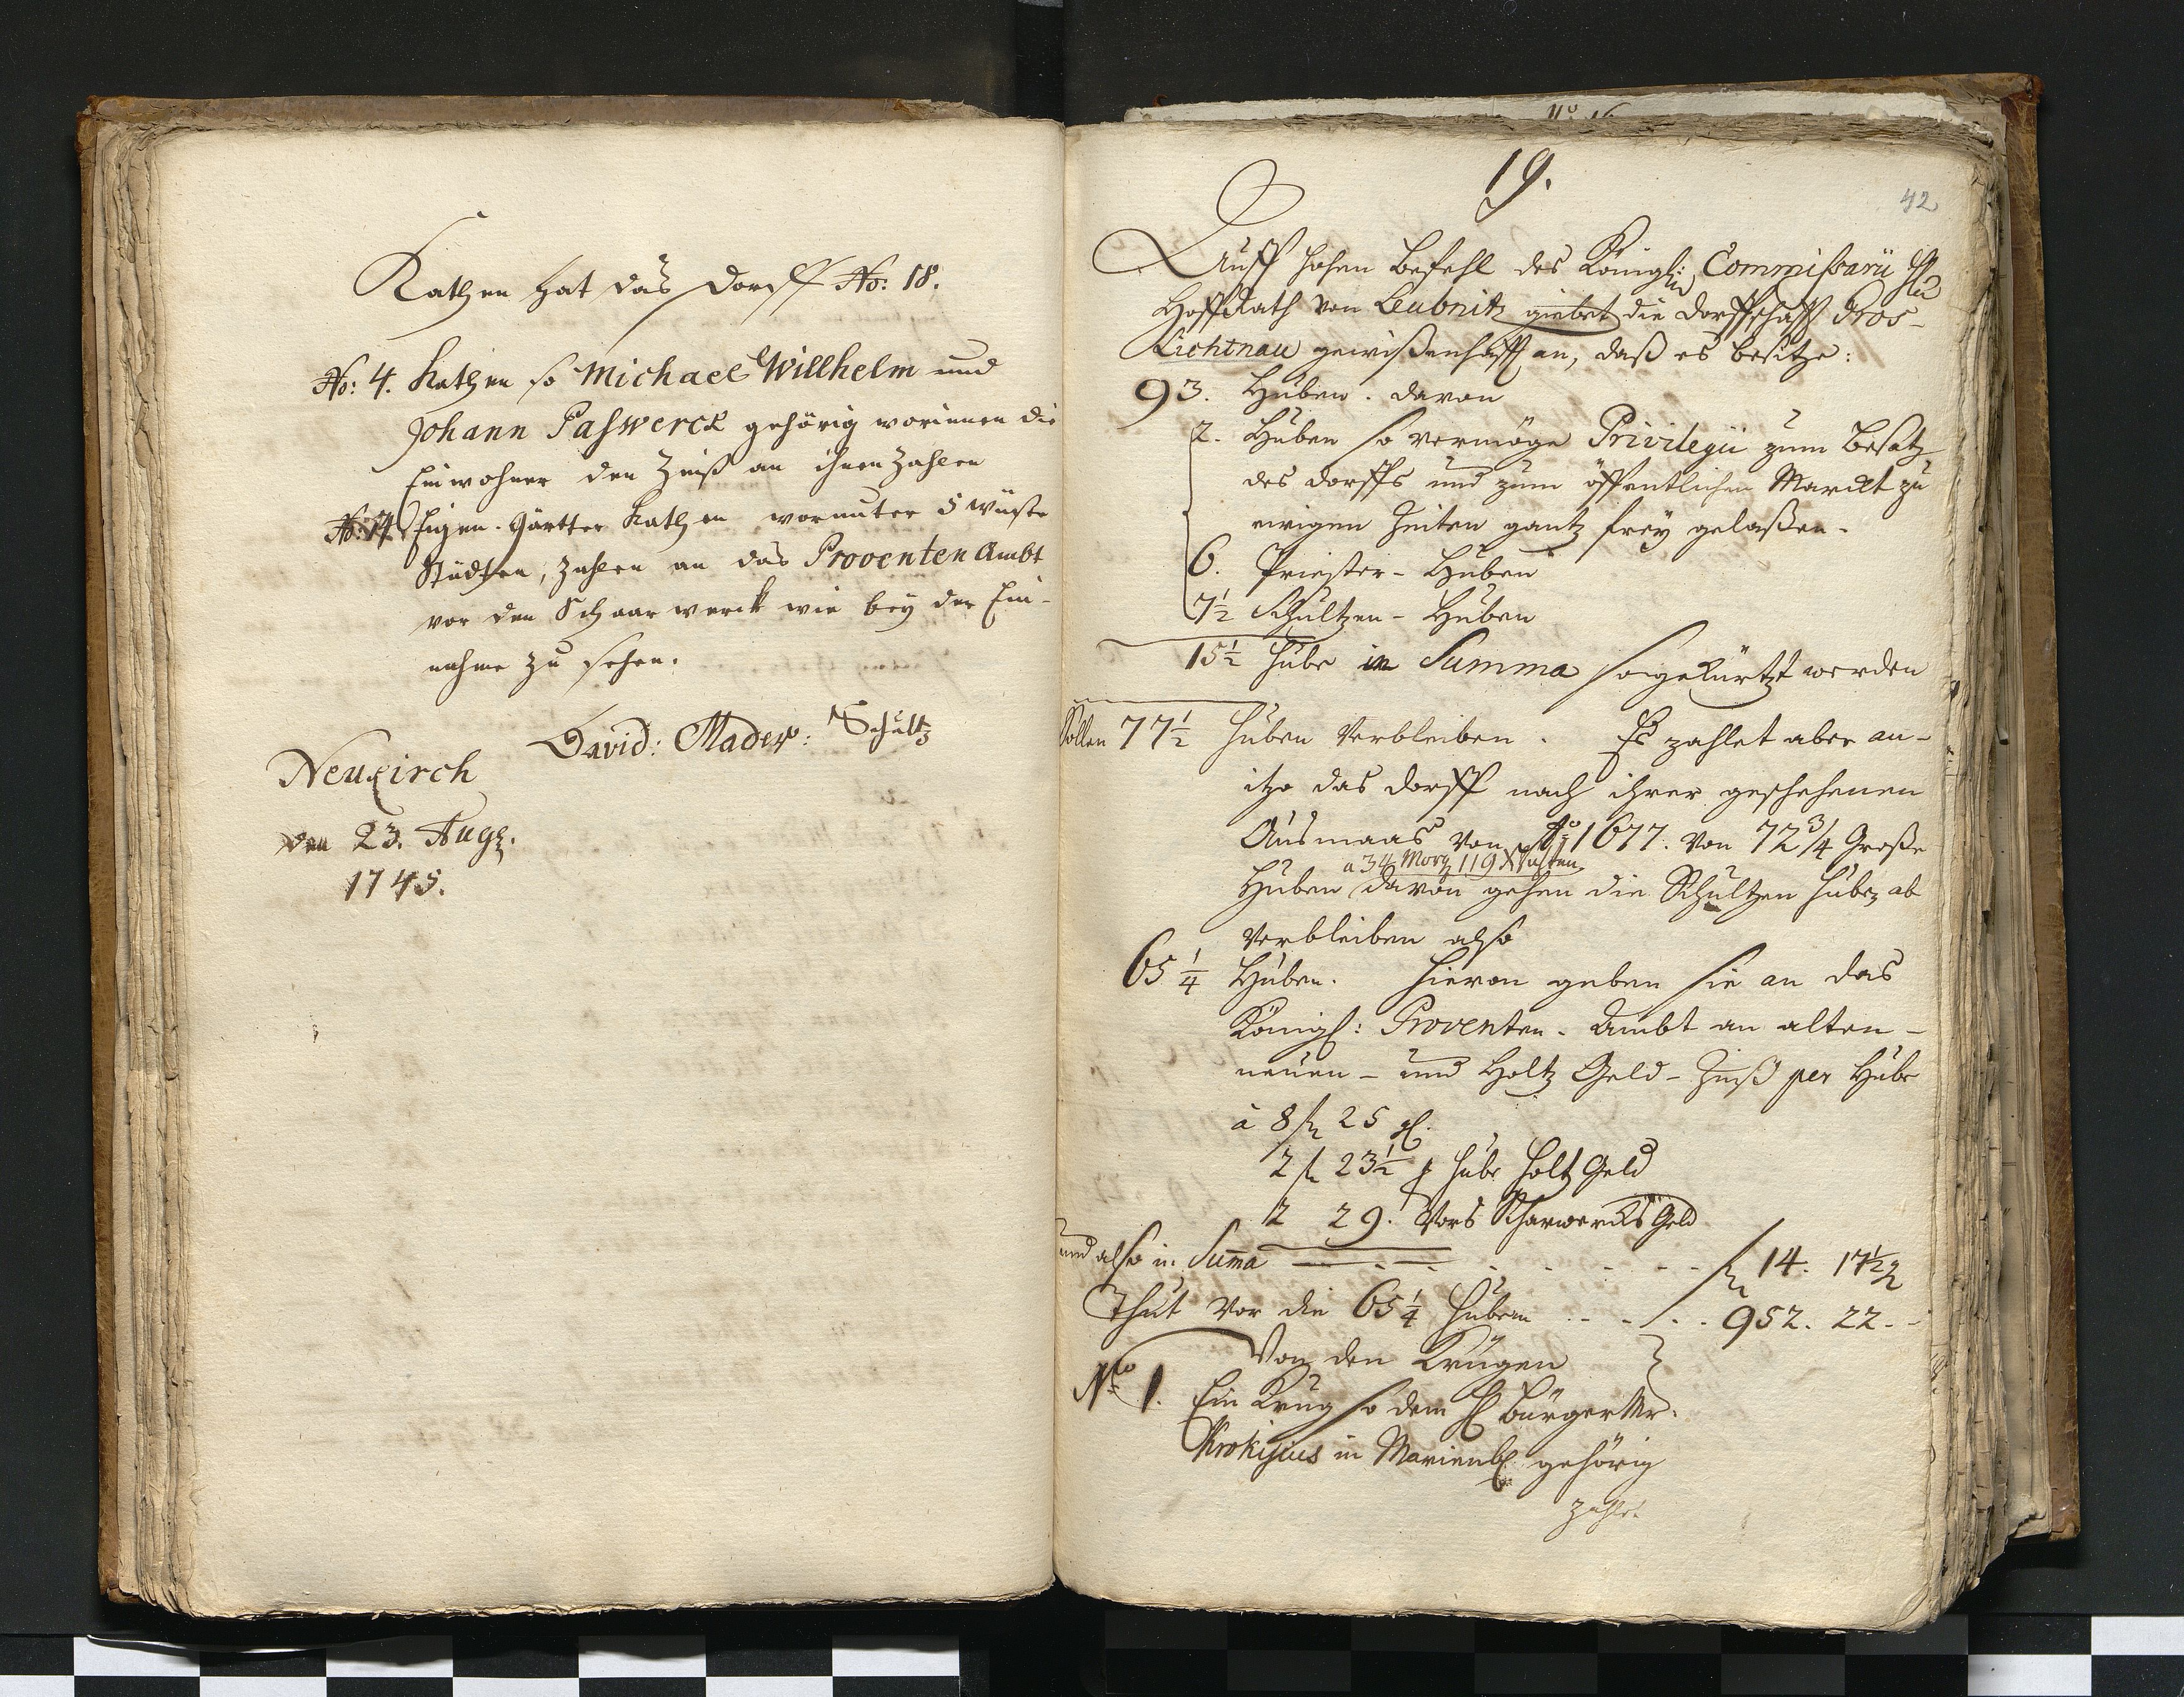 Kathen hat das Dorff No: 18.
No: 4. Kathen so Michael Willhelm und
Johann Paßwerck gehörig worinnen die
Einwohner den Zinß an ihnen zahlen
No: 14 Eigen-Gärtter Kathen worunter 5 wüste
Städten, zahlen an das Proventen Ambt
vor den Schaarwerck wie bey der Ein-
nahme zu sehen.
David: Mader: Schultz
Neukirch
den 23. Aug.
1745.
No 16
19.
42
Auff hohen Befehl des Königl: Commißarii
HoffRath von Leubnitz giebet die Dorffschafft Gros-
Lichtnau gewißenhafft an, daß es besitze:
93. Huben. davon
2. Huben so vermöge Privilegii zum Besatz
des Dorffs und zum öffentlichen Marckt zu
ewigen Zeiten gantz frey gelaßen.
6. Priester-Huben
7½ Schultzen-Huben
15½ Hube in Summa so gekürtzt werden
Sollen 77½ Huben Verbleiben. Es zahlet aber an-
itzo das Dorff nach ihrer geschehenen
Ausmaas von Ao 1677. von 72¾ Große
a 34 Morg 119
Huben davon gehen die Schultzen Hub. ab
Verbleiben also
65¼ Huben. Hievon geben sie an das
Königl: Proventen-Ambt an alten-
neuen- und Holtz Geld-Zinß per Hube
à 8 fl 25 gl.
2 fl 23½ p Hube Holtz Geld
2 29. Vors Scharwercks Geld
und also in Summa - - - - fl 14. 17½
Thut vor die 65¼ Huben - - - 952. 22.-
Von den Krügen
No 1. Ein Krug so dem H Bürger Mr.
Krokisius in Marienb gehörig
zahlt.